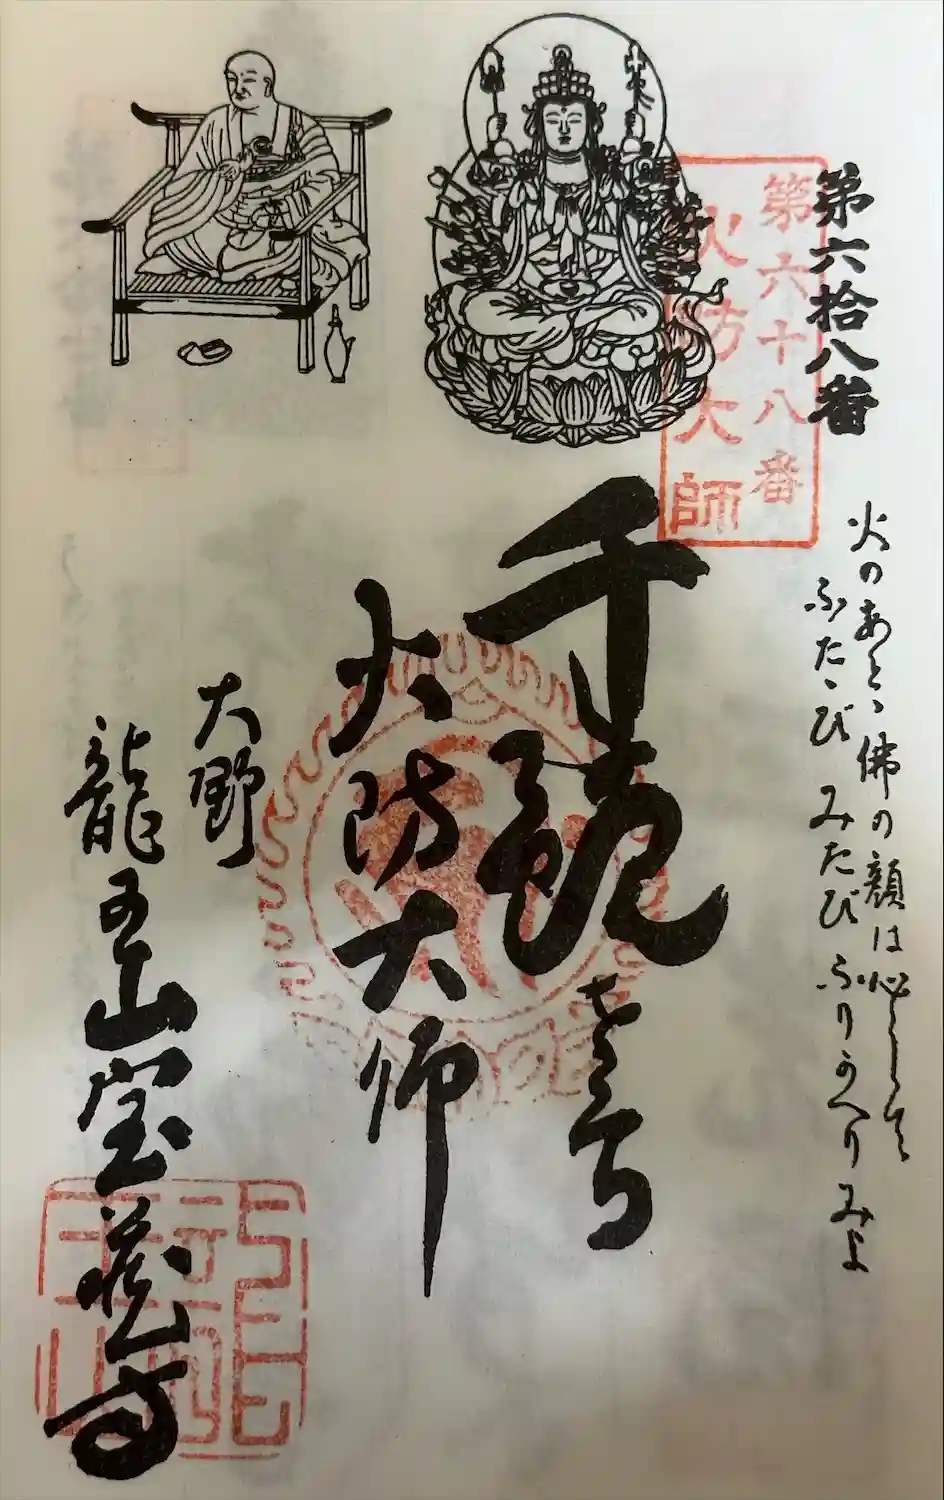 第六拾八番
第六十八番
火防大師
火のあとゝ佛の顔は必らして
ふたゝび みたび ふりかへりみよ
千観世音
火防大师
大野
龍王山宝蔵寺